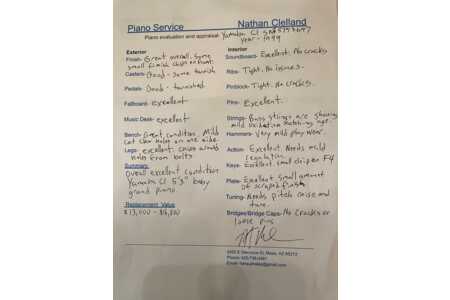 Piano Service
Nathan Clelland
Piano evaluation and appraisal: Yamaha C1
year - 1999
Exterior
Finish- Great overall. Some
small finish chips on front
Casters- Good - some tarnish
Pedals- Good - tarnished
Fallboard- excellent
Music Desk- excellent
Bench- Great condition. Mild
cat claw holes on one side.
Legs- excellent.
holes from bolts
Summary
Overall excellent condition
Yamaha C1 5'3" baby
grand piano
Replacement Value
$13,000 -
Interior
Soundboard- Excellent. No cracks
Ribs- Tight. No issues.
Pinblock- Tight. No cracks.
Pins- Excellent.
Strings- Bass strings are showing
mild oxidation matching age.
Hammers- Very mild play wear.
Action- Excellent. Needs mild
regulation
Keys- Excellent. small chip on F4
Plate- Excellent small amount
of scraped finish
Tuning- Needs pitch raise and
tune.
Bridges/Bridge Caps- No cracks or
loose pins
Phone:
Email: